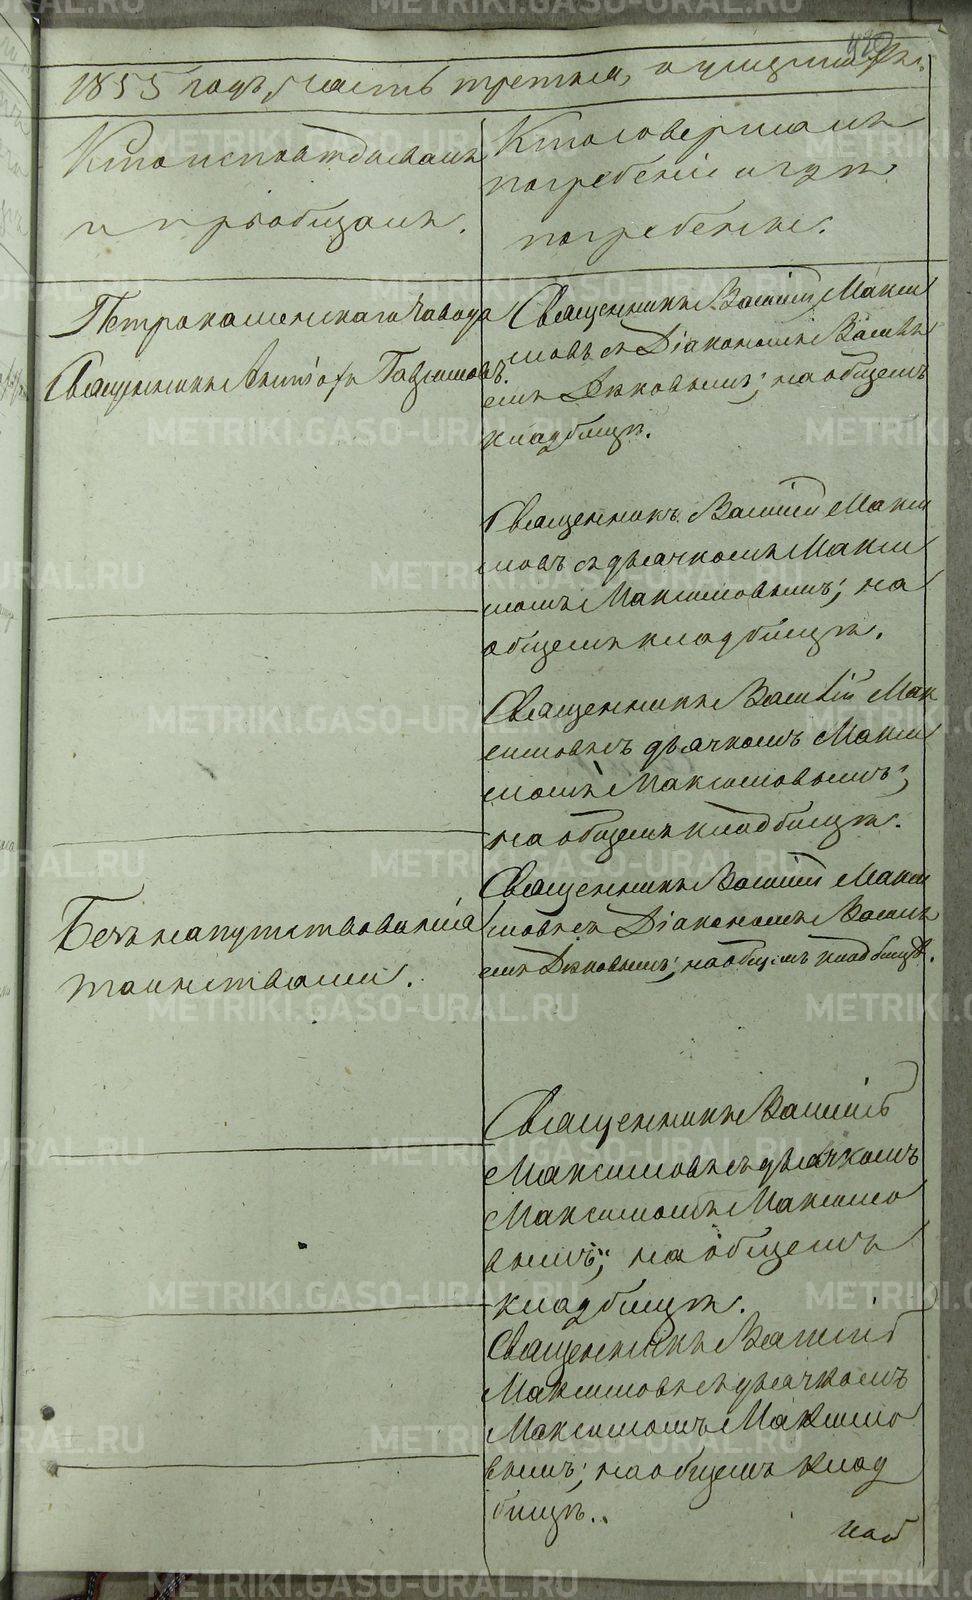 1855 годъ, часть третья, о умершихъ.
Кто исповѣдывалъ
и пріобщалъ.
Кто совершалъ
погребеніе и гдѣ
погребены.
Петрокаменскаго завода
Священникъ Гаврiиловъ.
Священникъ Василій Макси
мовъ съ Діакономъ Василь
емъ на общемъ
кладбищѣ.
Священникъ Василій Макси
мовъ съ дьячкомъ Макси
момъ Максимовымъ; на
общемъ кладбищѣ.
Священникъ Василій Мак
симовъ съ дьячкомъ Макси
момъ Максимовымъ;
на общемъ кладбищѣ.
Безъ напутствованія
таинствами.
Священникъ Василій Макси
мовъ съ Діакономъ Василь
емъ на общемъ кладбищѣ.
Священникъ Василій
Максимовъ съ дьячкомъ
Максимомъ Максимо
вымъ; на общемъ
кладбищѣ.
Священникъ Василій
Максимовъ съ дьячкомъ
Максимомъ Максимо
вымъ; на общемъ клад
бищѣ.
METRIKI.GASO-URAL.RU